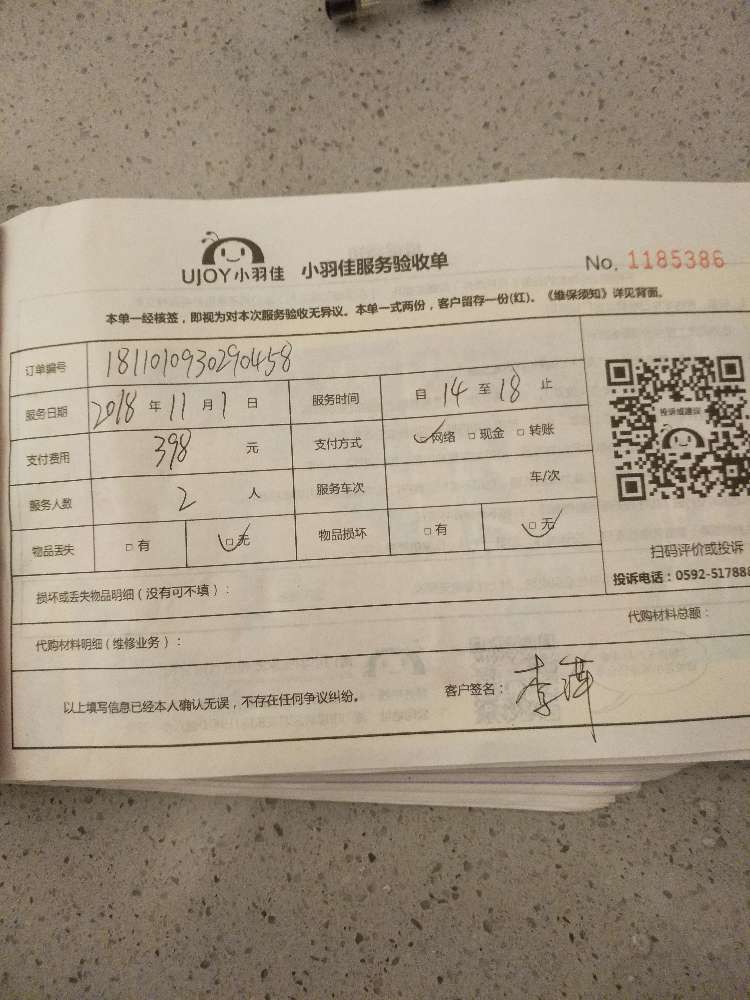 UJOY小羽佳 小羽佳服务验收单 No. 1185386
本单一经核签，即视为对本次服务验收无异议。本单一式两份，客户留存一份(红)。《维保须知》详见背面。
订单编号 1811010930290458
服务日期 2018 年 11 月 1 日 服务时间 自 14 至 18 止
支付费用 398 元 支付方式 ☑网络 □现金 □转账
服务人数 2 人 服务车次 车/次
物品丢失 □有 ☑无 物品损坏 □有 ☑无
投诉或建议
扫码评价或投诉
投诉电话：0592-517888
损坏或丢失物品明细（没有可不填）：
代购材料明细（维修业务）： 代购材料总额：
以上填写信息已经本人确认无误，不存在任何争议纠纷。 客户签名：李萍